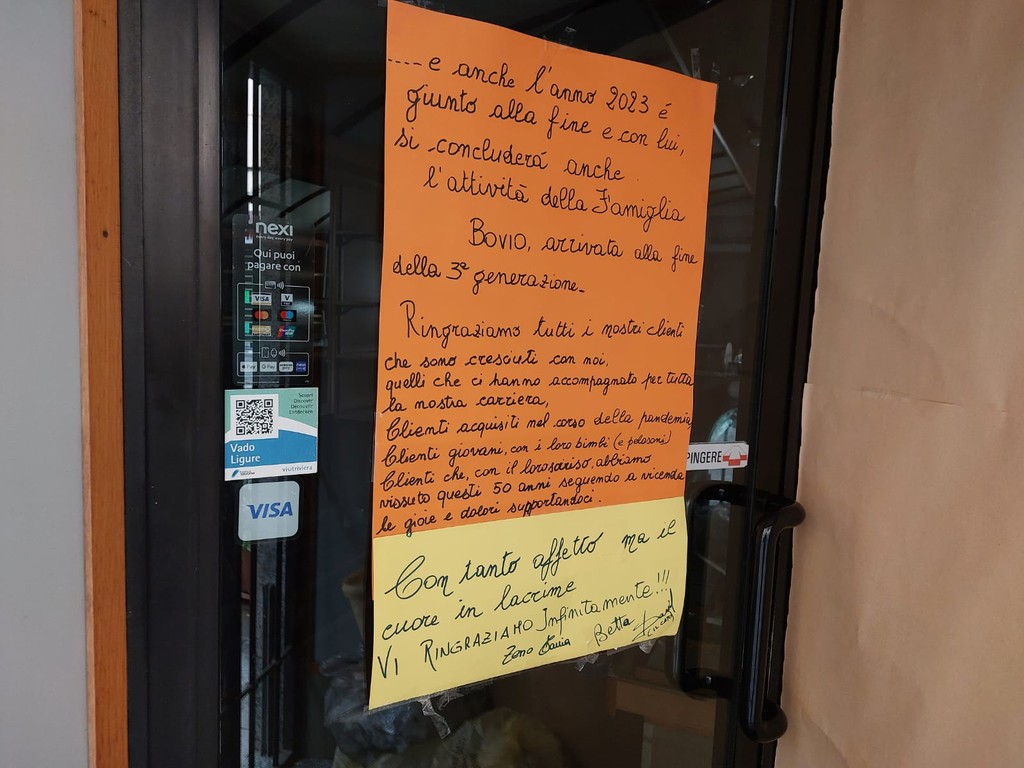 ....e anche l'anno 2023 é
giunto alla fine e con lui,
si concluderá anche
l'attivitá della Famiglia
BOVIO, arrivata alla fine
della 3ª generazione.
Ringraziamo tutti i nostri clienti
che sono cresciuti con noi,
quelli che ci hanno accompagnato per tutta
la nostra carriera,
Clienti acquisiti nel corso della pandemia,
Clienti giovani, con i loro bimbi (e pelosoni)
Clienti che, con il loro sorriso, abbiamo
vissuto questi 50 anni seguendo a vicenda
le gioie e dolori supportandoci.
Con tanto affetto ma il
cuore in lacrime
VI RINGRAZIAMO Infinitamente!!!
Zeno Betta
nexi
every day, every pay
Qui puoi
pagare con
VISA
V
Pay
G Pay
Scopri
Discover
Découvrir
Entdecken
Vado
Ligure
visitriviera
VISA
PINGERE